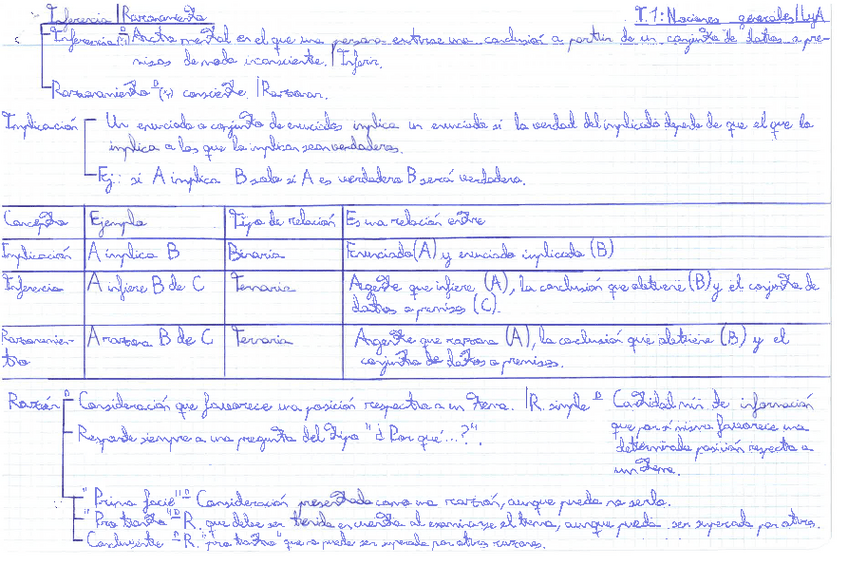 Inferencia | Razonamiento
T.1: Nociones generales | LyA
Inferencia (n) Acto mental en el que una persona extrae una conclusión a partir de un conjunto de datos o pre-
misas de modo inconsciente. | Inferir.
Razonamiento (n) consciente. | Razonar.
Implicación
Un enunciado o conjunto de enunciados implica un enunciado si la verdad del implicado depende de que el que lo
implica o los que lo implican sean verdaderos.
Ej.: si A implica B solo si A es verdadero B será verdadero.
Concepto Ejemplo Tipo de relación Es una relación entre
Implicación A implica B Binaria Enunciado (A) y enunciado implicado (B)
Inferencia A infiere B de C Ternaria Agente que infiere (A), la conclusión que obtiene (B) y el conjunto de
datos o premisas (C).
Razonamien-
to
A razona B de C Ternaria Agente que razona (A), la conclusión que obtiene (B) y el
conjunto de datos o premisas.
Razón
Consideración que favorece una posición respecto a un tema. | R. simple
Cantidad mín. de información
que por sí misma favorece una
determinada posición respecto a
un tema.
Responde siempre a una pregunta del tipo "¿Por qué...?".
"Prima facie" Consideración presentada como una razón, aunque pueda no serlo.
"Pro tanto" R. que debe ser tenida en cuenta al examinarse el tema, aunque pueda ser superada por otras.
Concluyente R. "pro tanto" que no puede ser superada por otras razones.